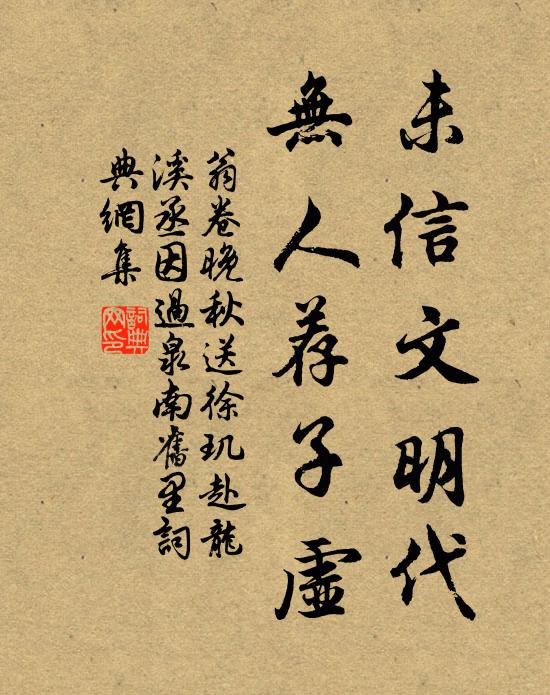 未信文明代
無人荐子虛
翁卷晚秋送徐玑赴龍
溪丞因過泉南舊里詞
典網集
詞典
网印